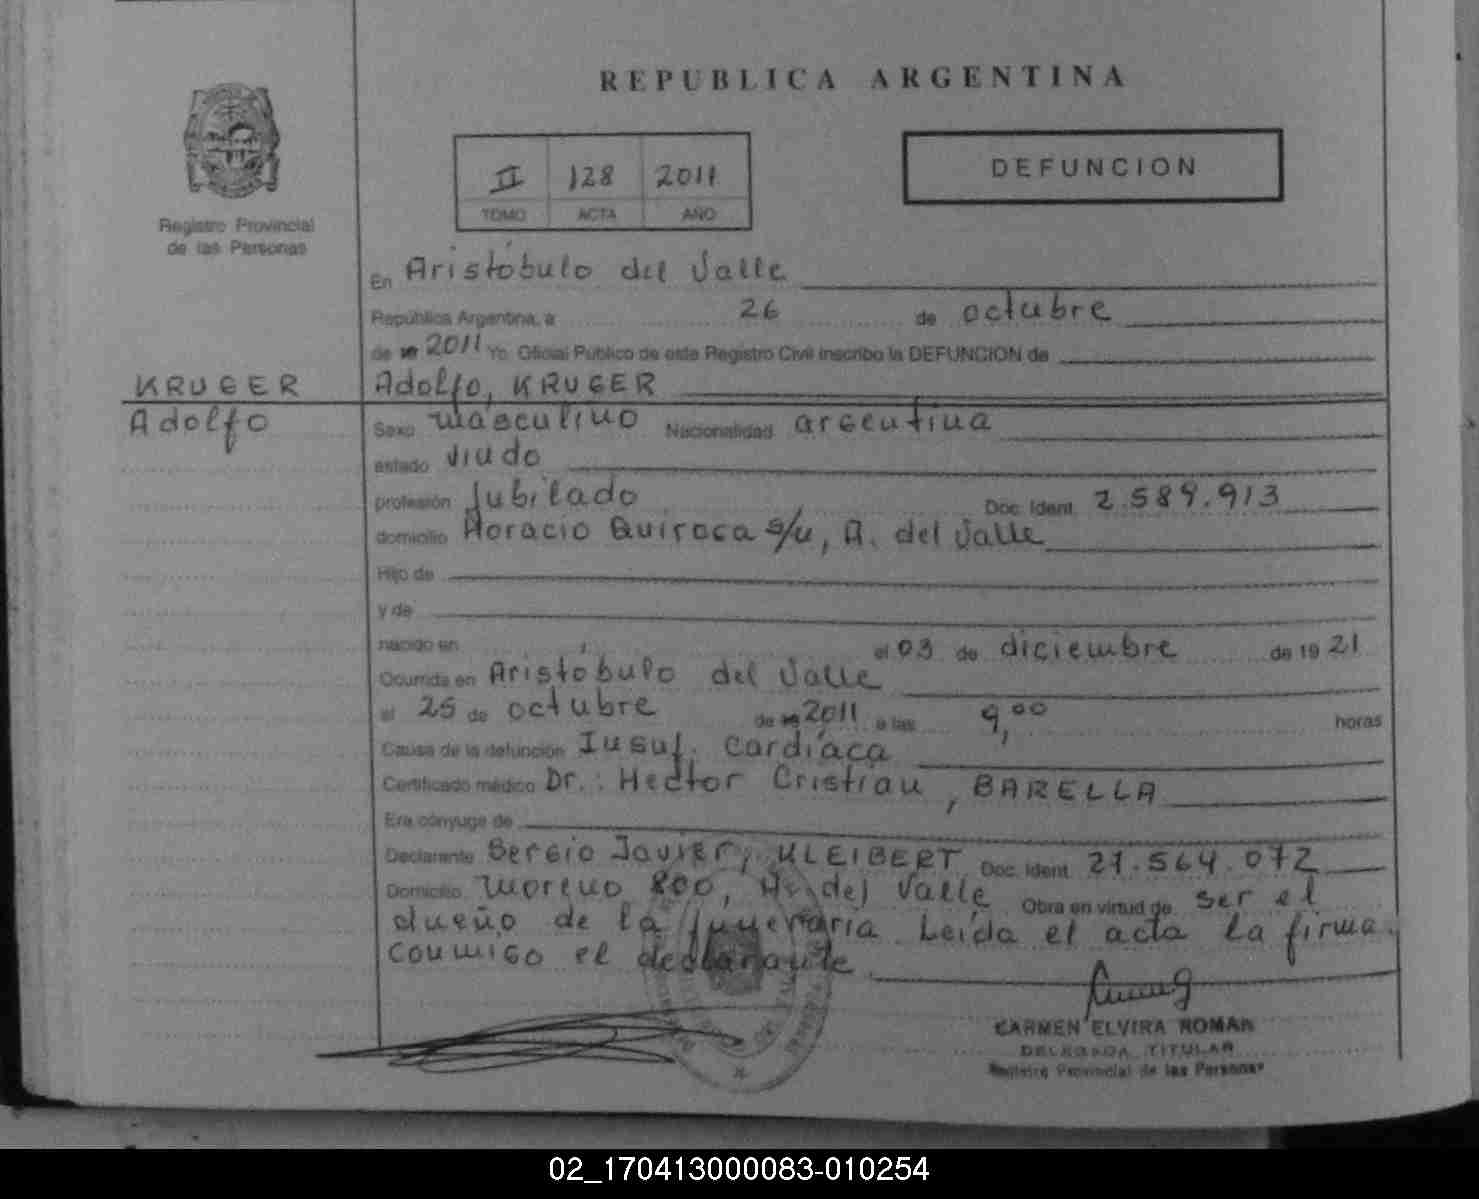 REPUBLICA ARGENTINA
II 128 2011
TOMO ACTA AÑO
DEFUNCION
Registro Provincial
de las Personas
En Aristóbulo del Valle
República Argentina, a 26 de octubre
de 19 2011 Yo Oficial Público de este Registro Civil inscribo la DEFUNCION de
KRUGER
Adolfo
Adolfo, KRUGER
Sexo masculino Nacionalidad argentina
estado viudo
profesión Jubilado Doc. Ident. 2.589.913
domicilio Horacio Quiroga s/n, A. del Valle
Hijo de
y de
nacido en el 03 de diciembre de 19 21
Ocurrida en Aristóbulo del Valle
el 25 de octubre de 19 2011 a las 9,00 horas
Causa de la defunción Insuf. cardíaca
Certificado médico Dr.: Hector Cristian, BARELLA
Era cónyuge de
Declarante Sergio Javier, KLEIBERT Doc. Ident. 21.564.072
Domicilio Moreno 800, A. del Valle Obra en virtud de ser el
dueño de la funeraria. Leída el acta la firma
conmigo el declarante
CARMEN ELVIRA ROMAN
DELEGADA TITULAR
Registro Provincial de las Personas
02_170413000083-010254